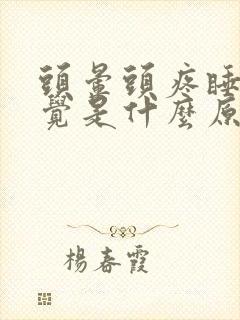 頭暈頭疼睡
覺是什麼原
楊春霞